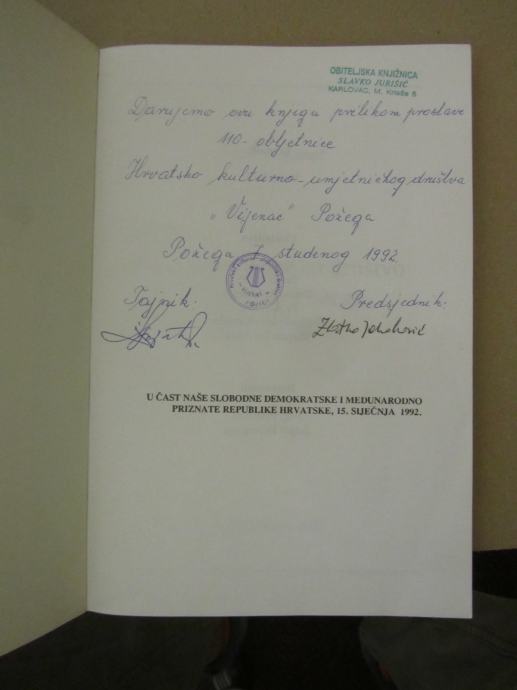 OBITELJSKA KNJIŽNICA
SLAVKO JURIŠIĆ
KARLOVAC, M. Krleže 6
Darujemo ovu knjigu prilikom proslave
110-obljetnice
Hrvatsko kulturno-umjetničkog društva
"Vijenac" Požega
Požega 7 studenog 1992.
Tajnik:
Predsjednik:
U ČAST NAŠE SLOBODNE DEMOKRATSKE I MEĐUNARODNO
PRIZNATE REPUBLIKE HRVATSKE, 15. SIJEČNJA 1992.